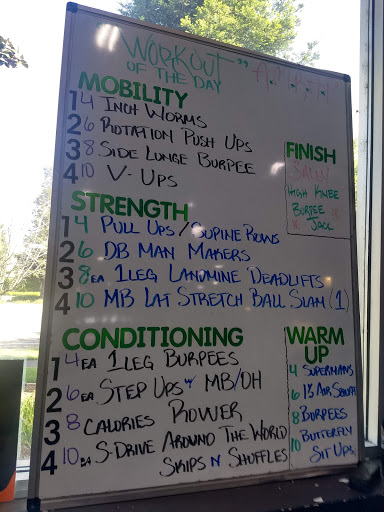 WORKOUT
OF THE DAY
MOBILITY
1 4 INCH WORMS
2 6 ROTATION PUSH UPS
3 8 SIDE LUNGE BURPEE
4 10 V-UPS
FINISH
HIGH KNEE
BURPEE
JACK
STRENGTH
1 4 PULL UPS/SUPINE ROWS
2 6 DB MAN MAKERS
3 8EA 1LEG LANDMINE DEADLIFTS
4 10 MB LAT STRETCH BALL SLAM (1)
CONDITIONING
1 4EA 1LEG BURPEES
2 6EA STEP UPS W/ MB/OH
3 8 CALORIES ROWER
4 10EA S-DRIVE AROUND THE WORLD
SKIPS N SHUFFLES
WARM
UP
4 SUPERMANS
6 1½ AIR SQUATS
8 BURPEES
10 BUTTERFLY
SIT UPS